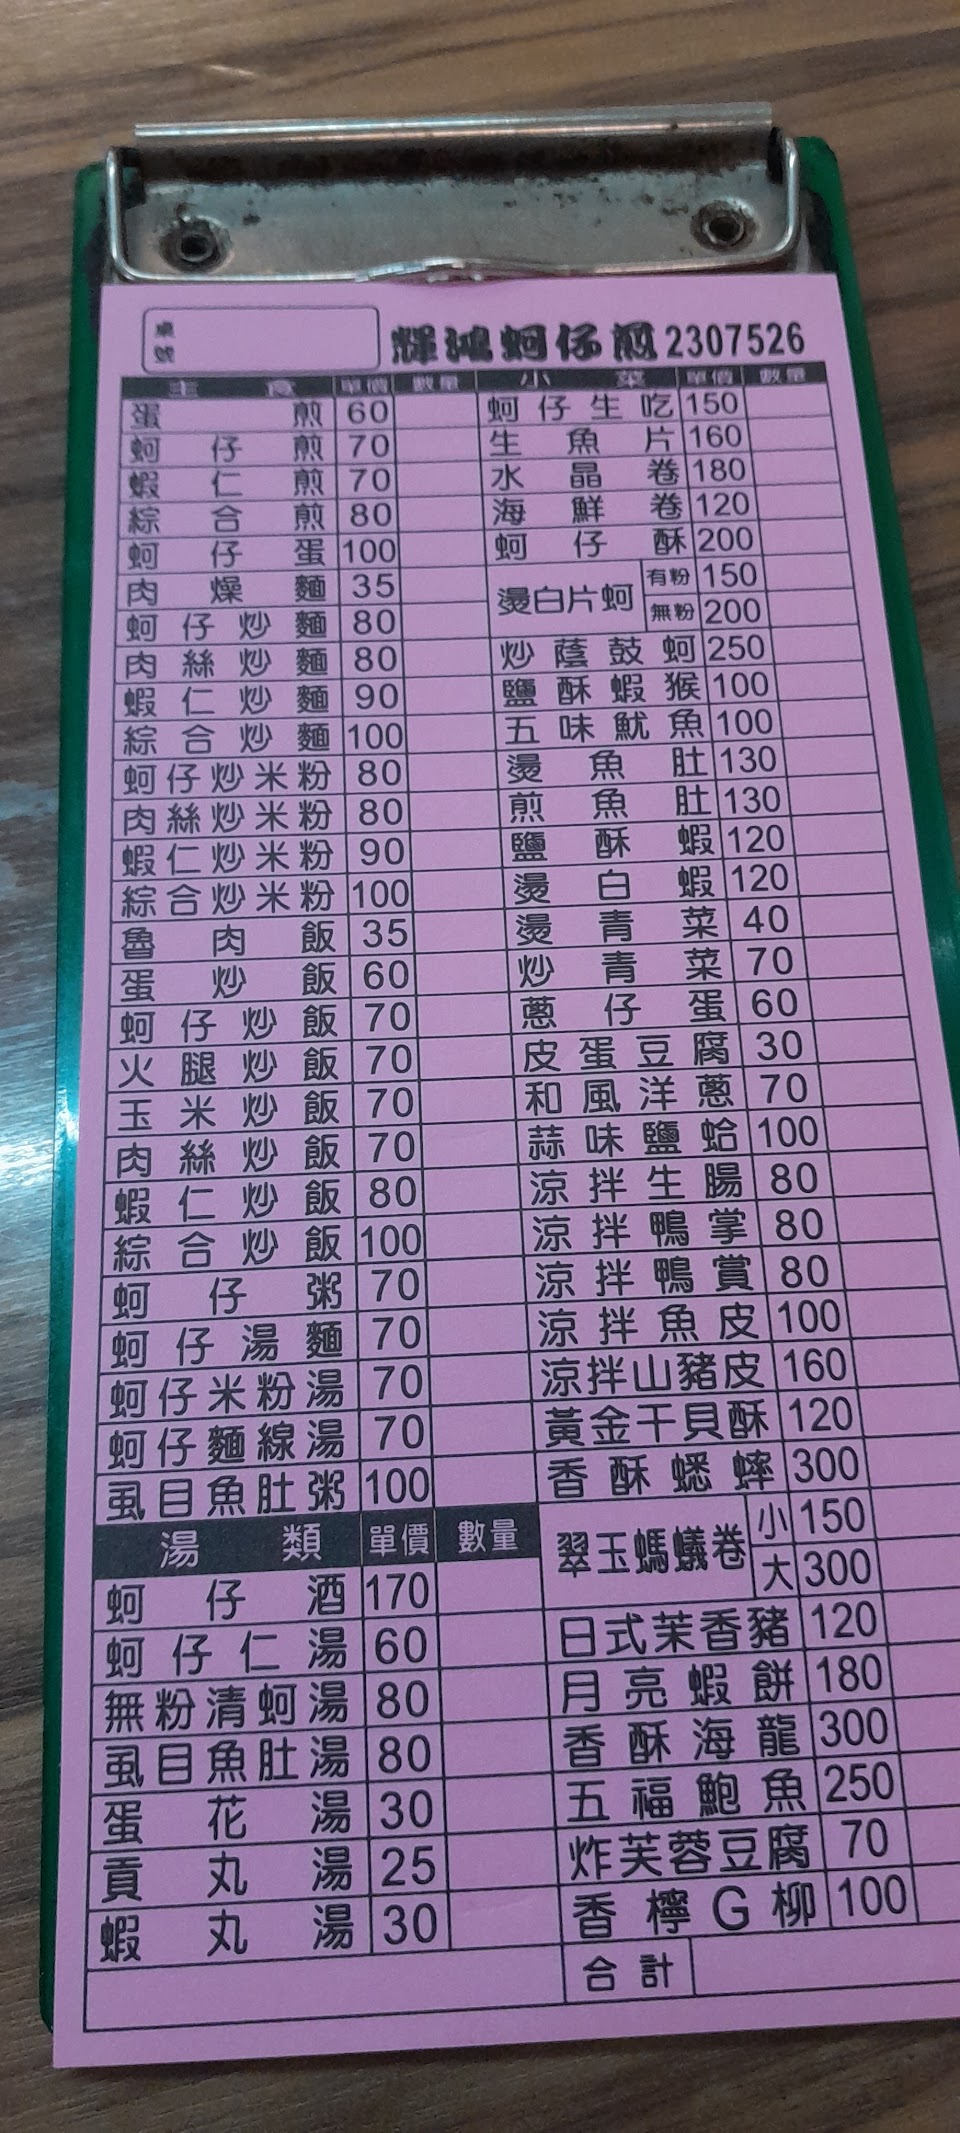 桌號
輝鴻蚵仔煎2307526
主食 單價 數量
蛋煎 60
蚵仔煎 70
蝦仁煎 70
綜合煎 80
蚵仔蛋 100
肉燥麵 35
蚵仔炒麵 80
肉絲炒麵 80
蝦仁炒麵 90
綜合炒麵 100
蚵仔炒米粉 80
肉絲炒米粉 80
蝦仁炒米粉 90
綜合炒米粉 100
魯肉飯 35
蛋炒飯 60
蚵仔炒飯 70
火腿炒飯 70
玉米炒飯 70
肉絲炒飯 70
蝦仁炒飯 80
綜合炒飯 100
蚵仔粥 70
蚵仔湯麵 70
蚵仔米粉湯 70
蚵仔麵線湯 70
虱目魚肚粥 100
湯類 單價 數量
蚵仔酒 170
蚵仔仁湯 60
無粉清蚵湯 80
虱目魚肚湯 80
蛋花湯 30
貢丸湯 25
蝦丸湯 30
小菜 單價 數量
蚵仔生吃 150
生魚片 160
水晶卷 180
海鮮卷 120
蚵仔酥 200
燙白片蚵 有粉 150
無粉 200
炒蔭鼓蚵 250
鹽酥蝦猴 100
五味魷魚 100
燙魚肚 130
煎魚肚 130
鹽酥蝦 120
燙白蝦 120
燙青菜 40
炒青菜 70
蔥仔蛋 60
皮蛋豆腐 30
和風洋蔥 70
蒜味鹽蛤 100
涼拌生腸 80
涼拌鴨掌 80
涼拌鴨賞 80
涼拌魚皮 100
涼拌山豬皮 160
黃金干貝酥 120
香酥蟋蟀 300
翠玉螞蟻卷 小 150
大 300
日式茉香豬 120
月亮蝦餅 180
香酥海龍 300
五福鮑魚 250
炸芙蓉豆腐 70
香檸G柳 100
合計